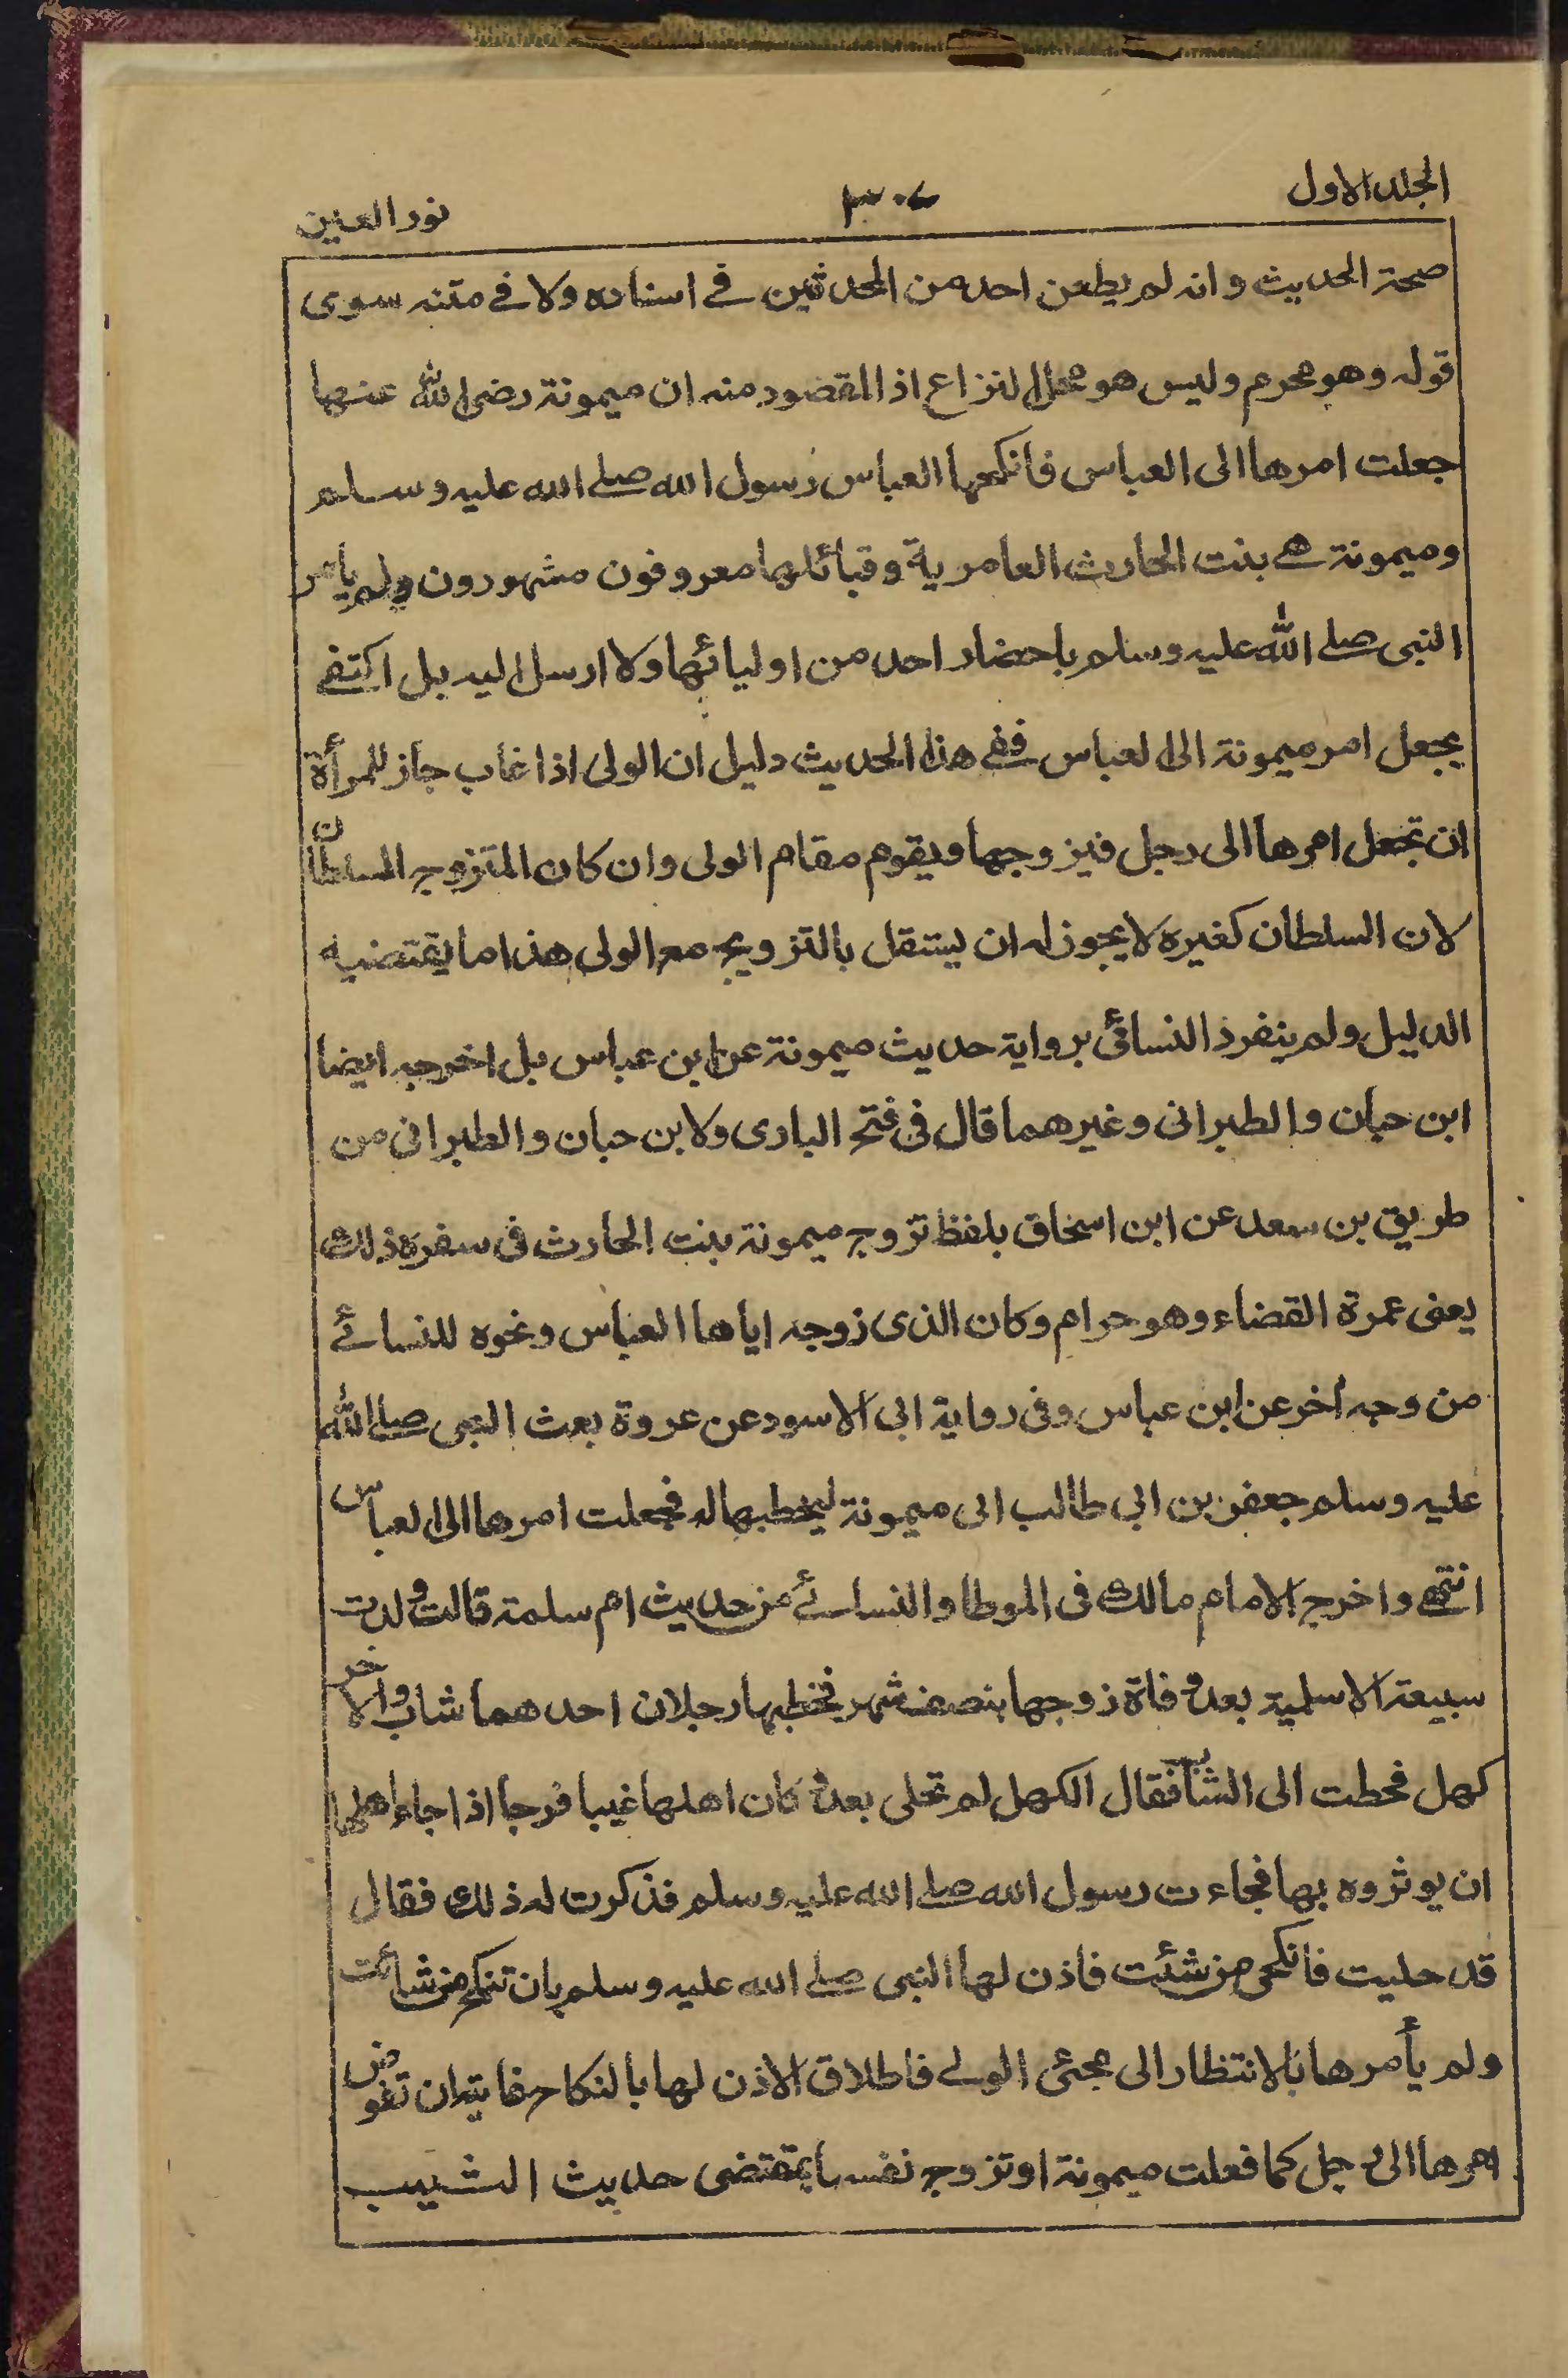 المجلد الاول ٣٠٤ نور العين
صحة الحديث وانه لم يطعن احد من المحدثين في اسناده ولا في متنه سوى
قوله وهو محرم وليس هو محل النزاع اذ المقصود منه ان ميمونة رضي الله عنها
جعلت امرها الى العباس فانكحها العباس رسول الله صلى الله عليه وسلم
وميمونة هي بنت الحارث العامرية وقبائلها معروفون مشهورون ولم يأمر
النبي صلى الله عليه وسلم باحضار احد من اوليائها ولا ارسل اليه بل اكتفى
بجعل امر ميمونة الى العباس ففي هذا الحديث دليل ان الولي اذا غاب جاز للمرأة
ان تجعل امرها الى رجل فيزوجها ويقوم مقام الولي وان كان المتزوج السلطان
لان السلطان كغيره لا يجوز له ان يستقل بالتزويج مع الولي هذا ما يقتضيه
الدليل ولم ينفرد النسائي برواية حديث ميمونة عن ابن عباس بل اخرجه ايضا
ابن حبان والطبراني وغيرهما قال في فتح الباري ولابن حبان والطبراني من
طريق بن سعد عن ابن اسحاق بلفظ تزوج ميمونة بنت الحارث في سفره ذلك
يعني عمرة القضاء وهو حرام وكان الذي زوجه اياها العباس ونحوه للنسائي
من وجه اخر عن ابن عباس وفي رواية ابي الاسود عن عروة بعث النبي صلى الله
عليه وسلم جعفر بن ابي طالب الى ميمونة ليخطبها له فجعلت امرها الى العباس
انتهى واخرج الامام مالك في الموطا والنسائي من حديث ام سلمة قالت ولدت
سبيعة الاسلمية بعد وفاة زوجها بنصف شهر فخطبها رجلان احدهما شاب والاخر
كهل فحطت الى الشاب فقال الكهل لم تحلي بعد و كان اهلها غيبا فرجا اذا جاء اهلها
ان يوثروه بها فجاءت رسول الله صلى الله عليه وسلم فذكرت له ذلك فقال
قد حليت فانكحي من شئت فاذن لها النبي صلى الله عليه وسلم بان تنكح من شائت
ولم يأمرها بالانتظار الى مجئي الولي فاطلاق الاذن لها بالنكاح غايته ان تفوض
امرها الى رجل كما فعلت ميمونة او تزوج نفسها بمقتضى حديث الثيب